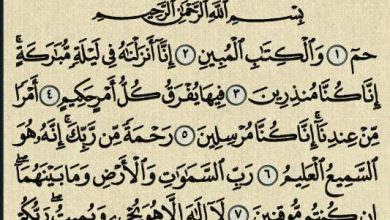 بِسْمِ اللَّهِ الرَّحْمَٰنِ الرَّحِيمِ
حمٓ ۝١ وَٱلْكِتَٰبِ ٱلْمُبِينِ ۝٢ إِنَّآ أَنزَلْنَٰهُ فِى لَيْلَةٍ مُّبَٰرَكَةٍ ۚ
إِنَّا كُنَّا مُنذِرِينَ ۝٣ فِيهَا يُفْرَقُ كُلُّ أَمْرٍ حَكِيمٍ ۝٤ أَمْرًا
مِّنْ عِندِنَآ ۚ إِنَّا كُنَّا مُرْسِلِينَ ۝٥ رَحْمَةً مِّن رَّبِّكَ ۚ إِنَّهُۥ هُوَ
ٱلسَّمِيعُ ٱلْعَلِيمُ ۝٦ رَبِّ ٱلسَّمَٰوَٰتِ وَٱلْأَرْضِ وَمَا بَيْنَهُمَآ ۖ
إِن كُنتُم مُّوقِنِينَ ۝٧ لَآ إِلَٰهَ إِلَّا هُوَ يُحْىِۦ وَيُمِيتُ ۖ رَبُّكُمْ